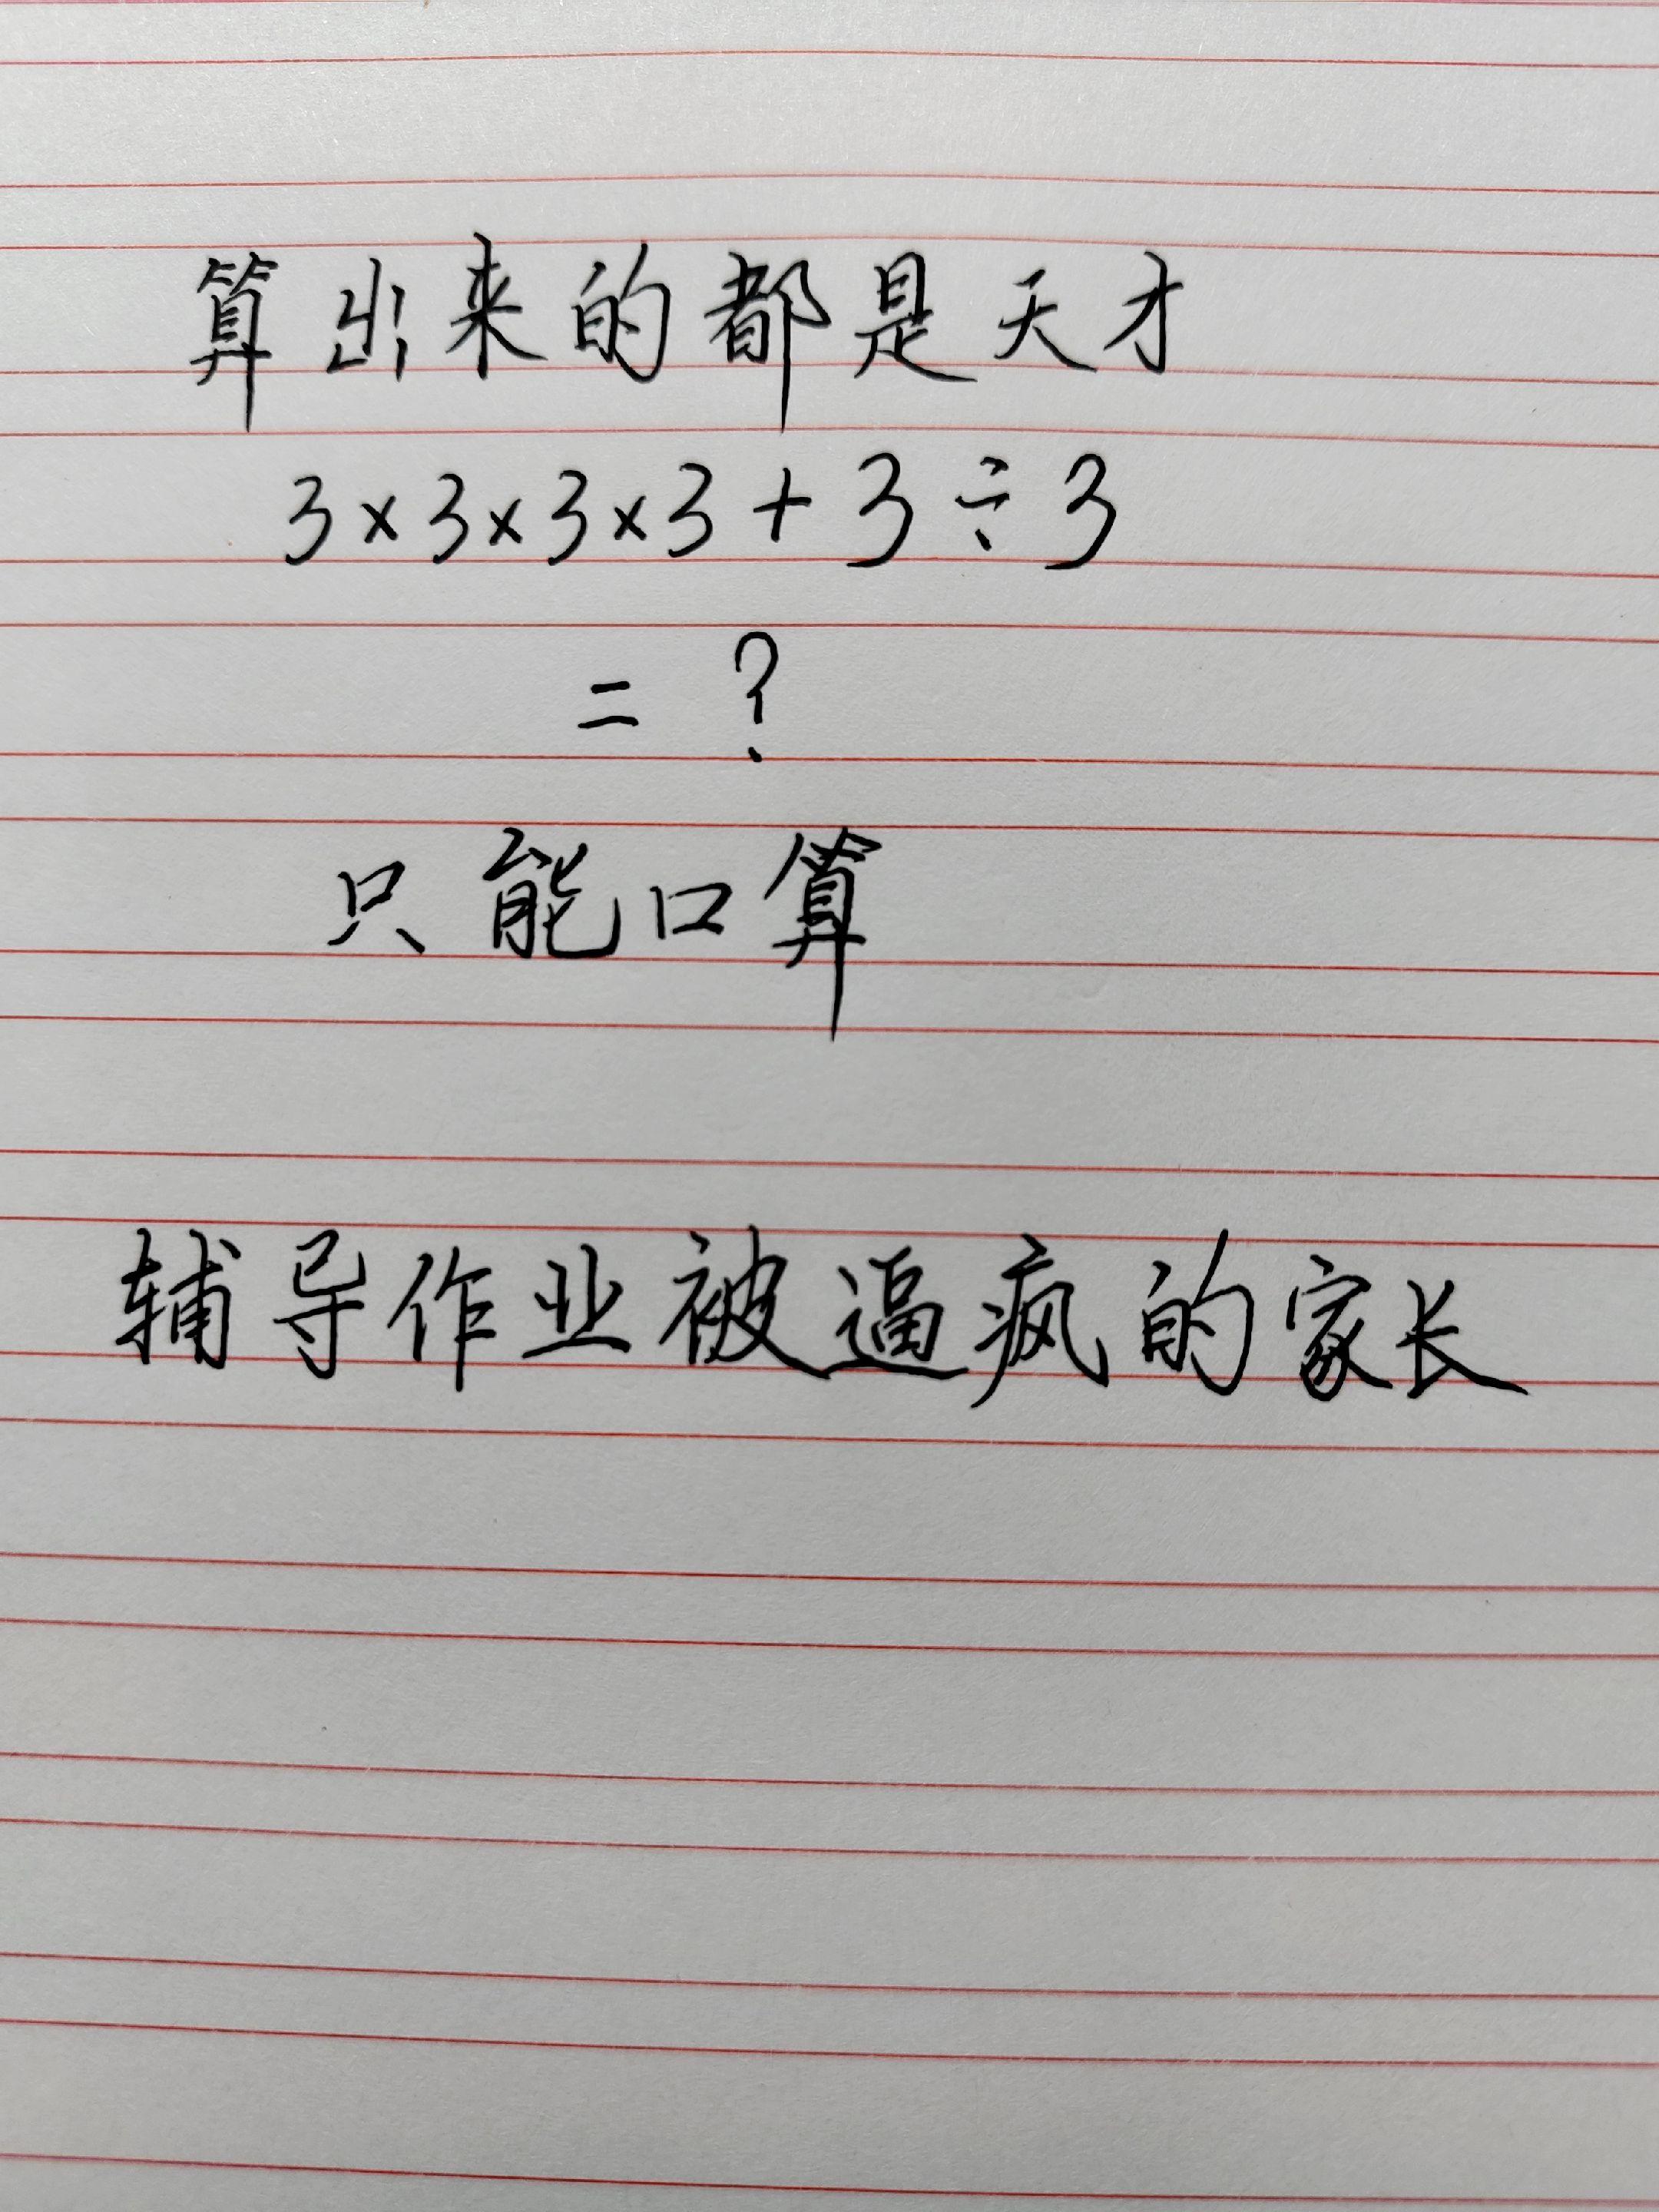 算出来的都是天才
3×3×3×3+3÷3
=?
只能口算
辅导作业被逼疯的家长